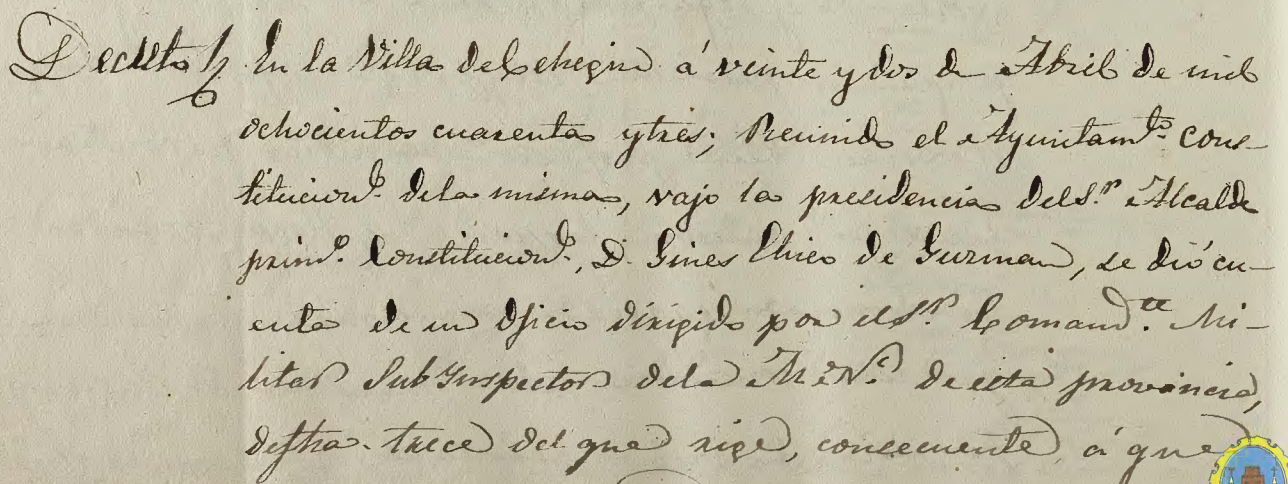 Decreto En la Villa de Cehegin á veinte y dos de Abril de mil
ochocientos cuarenta y tres; Reunido el Ayuntamto. cons-
titucionl. de la misma, vajo la presidencia del Sr. Alcalde
primo. Constitucionl., D. Gines Chico de Guzman, se dió cu-
enta de un oficio dirigido por el Sr. Comandte. Mi-
litar SubYnspector de la M. Nl. de esta provincia,
de fha. trece del que rige, consecuente á que